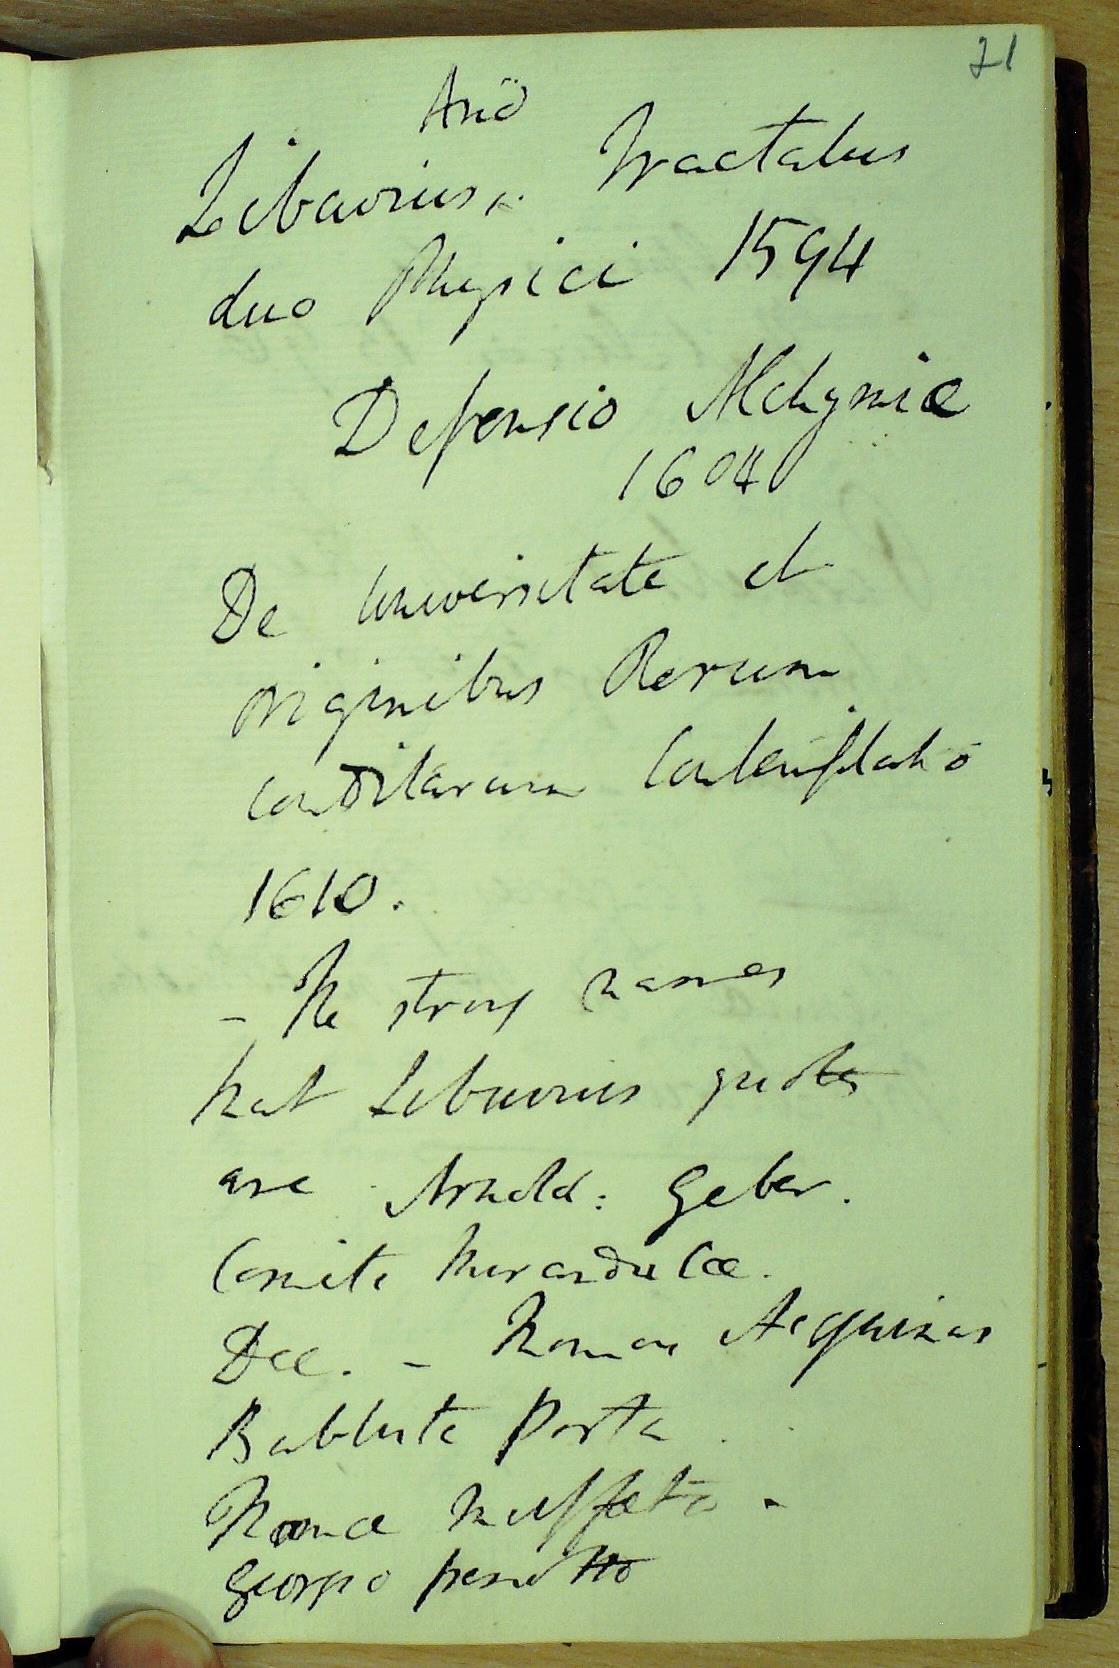 21
And
Libavius. Tractatus
duo Physici 1594
Defensio Alchymiae
1604
De Universitate et
originibus Rerum
conditarum Contemplatio
1610.
- The strong names
that Libavius quotes
are Arnold: Geber.
Comite Mirandulae.
Dee. - Thomas Acquinas
Babtista Porta
Thoma Muffeto -
Georgio